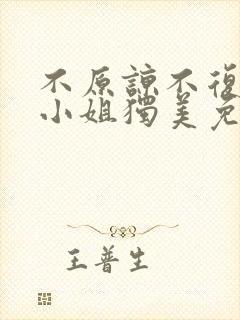 不原諒不復
小姐獨美免
王普生